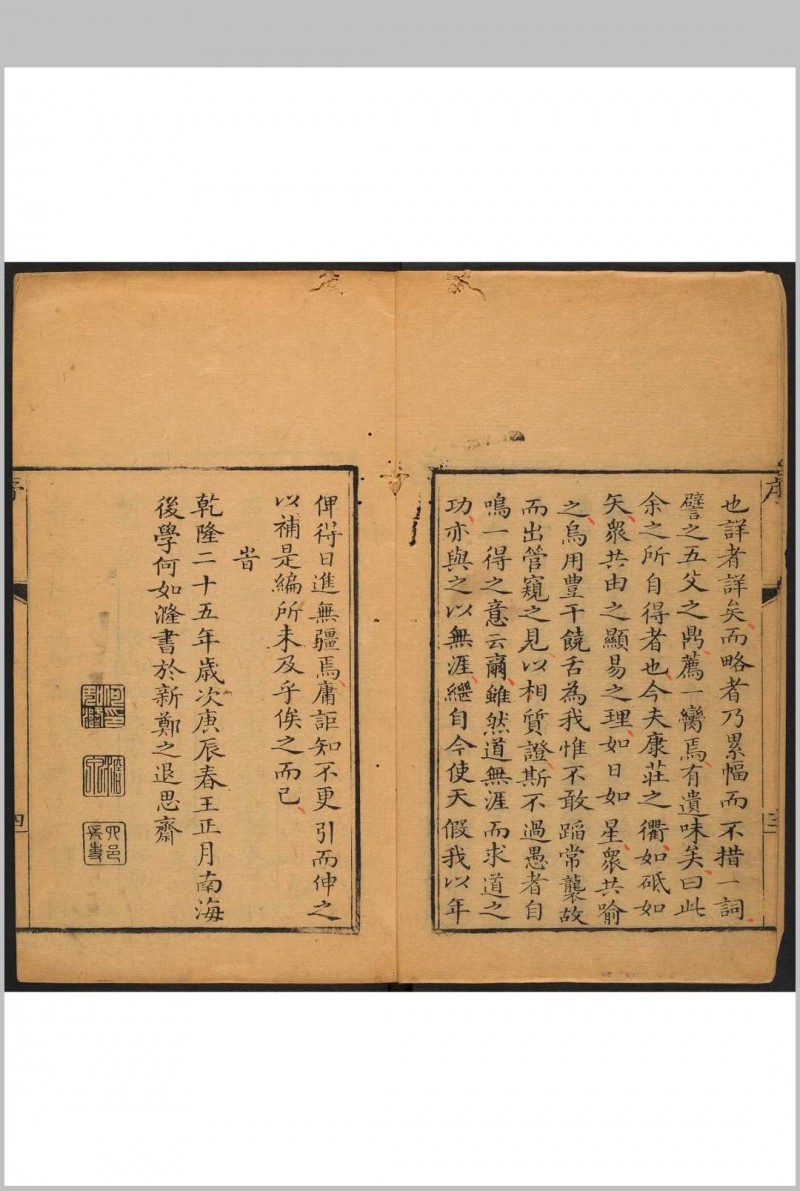 也詳者詳矣而略者乃累幅而不措一詞
譬之五父之鼎薦一臠焉有遺味矣曰此
余之所自得者也今夫康莊之衢如砥如
矢衆共由之顯易之理如日如星衆共喻
之烏用豊干饒舌為我惟不敢蹈常襲故
而出管窺之見以相質證斯不過愚者自
鳴一得之意云爾雖然道無涯而求道之
功亦與之以無涯繼自今使天假我以年
俾得日進無疆焉庸詎知不更引而伸之
以補是編所未及乎俟之而已
旹
乾隆二十五年歲次庚辰春王正月南海
後學何如漋書於新鄭之退思齋
序
三
四